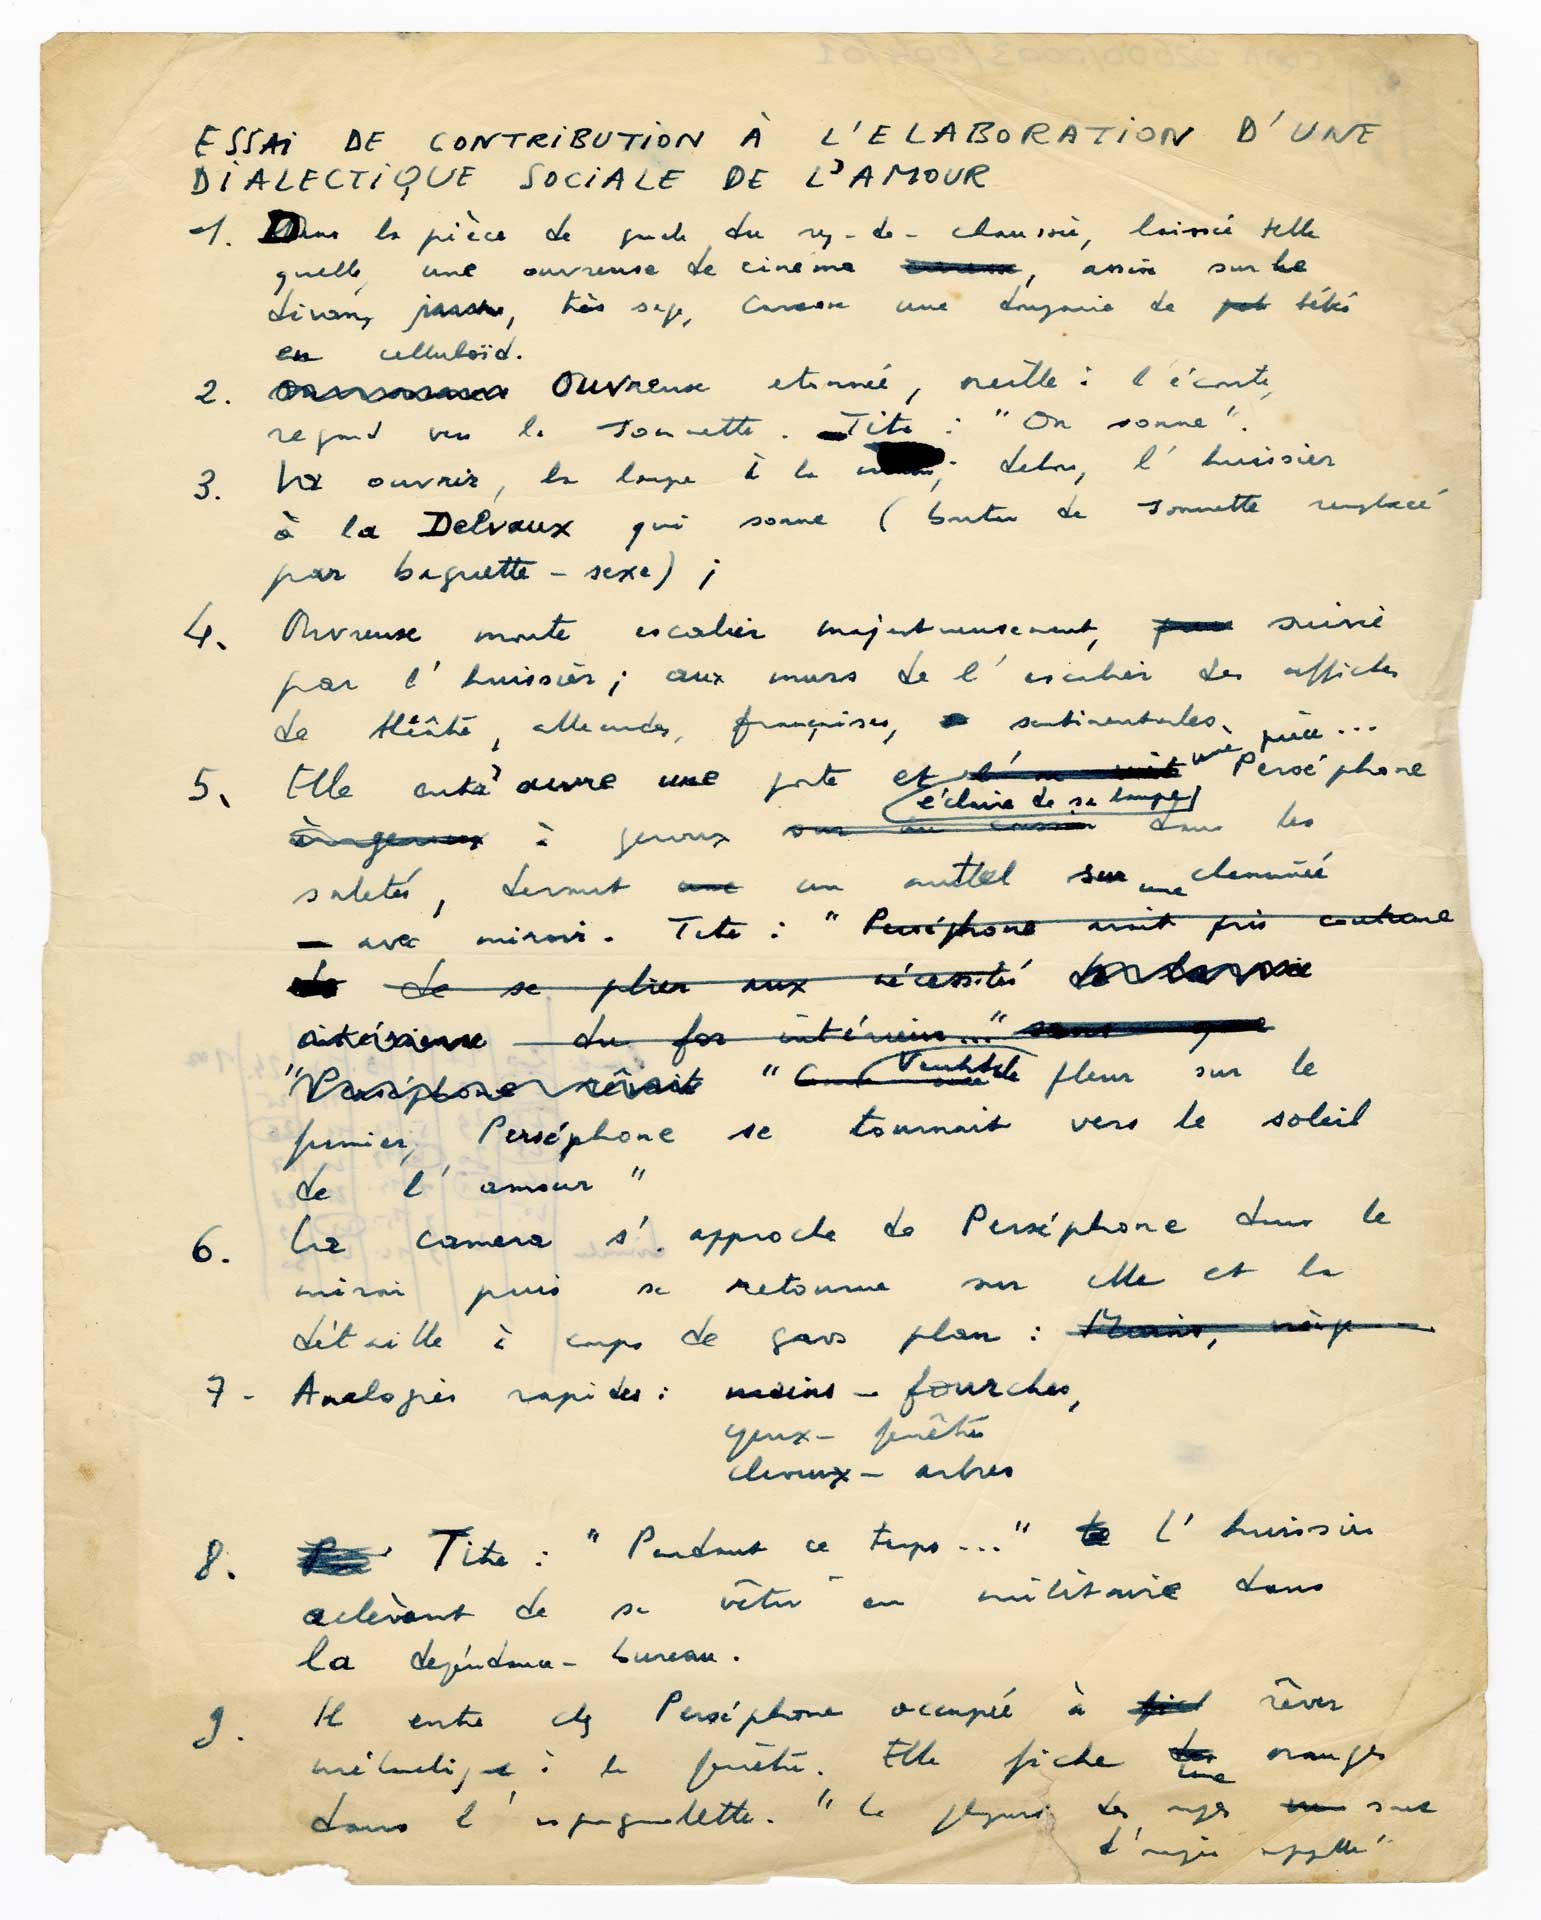 ESSAI DE CONTRIBUTION À L'ELABORATION D'UNE
DIALECTIQUE SOCIALE DE L'AMOUR
1. Dans la pièce de du rez-de-chaussée, laissée telle
quelle, une ouvreuse de cinéma, assise sur le
divan, très sage, caresse une de bébé
en celluloïd.
2. Ouvreuse etonnée, oreille : l'écoute,
regard vers la sonnette. Titre : "On sonne".
3. Va ouvrir, la lampe à la ; dehors, l'huissier
à la Delvaux qui sonne (bouton de sonnette remplacé
par baguette - sexe) ;
4. Ouvreuse monte escalier majestueusement, suivie
par l'huissier ; aux murs de l'escalier des affiches
de théâtre, allemandes, françaises, sentimentales.
5. Elle ouvre une porte et une pièce... Perséphone
éclaire de sa lampe
à genoux à genoux sur un coussin dans les
saletés, devant une un auttel sur une cheminée
avec miroir. Titre : "Perséphone avait pris coutume
de de se plier aux nécessités de la vie
intérieure du for intérieur..." sans que
"Perséphone rêvait " fleur sur le
fumier, Perséphone se tournait vers le soleil
de l'amour"
6. La camera s'approche de Perséphone dans le
miroir puis se retourne sur elle et la
détaille à coups de gros plan : Mains,
7- Analogies rapides : mains - fourches,
yeux - fenêtre
cheveux - arbres
8. Titre : "Pendant ce temps..." L'huissier
achèvant de se vêtir en militaire dans
la dépendance - bureau.
9. Il entre chez Perséphone occupée à rêver
mélancolique à la fenêtre. Elle fiche une oranges
dans l'espagnolette. "Le des